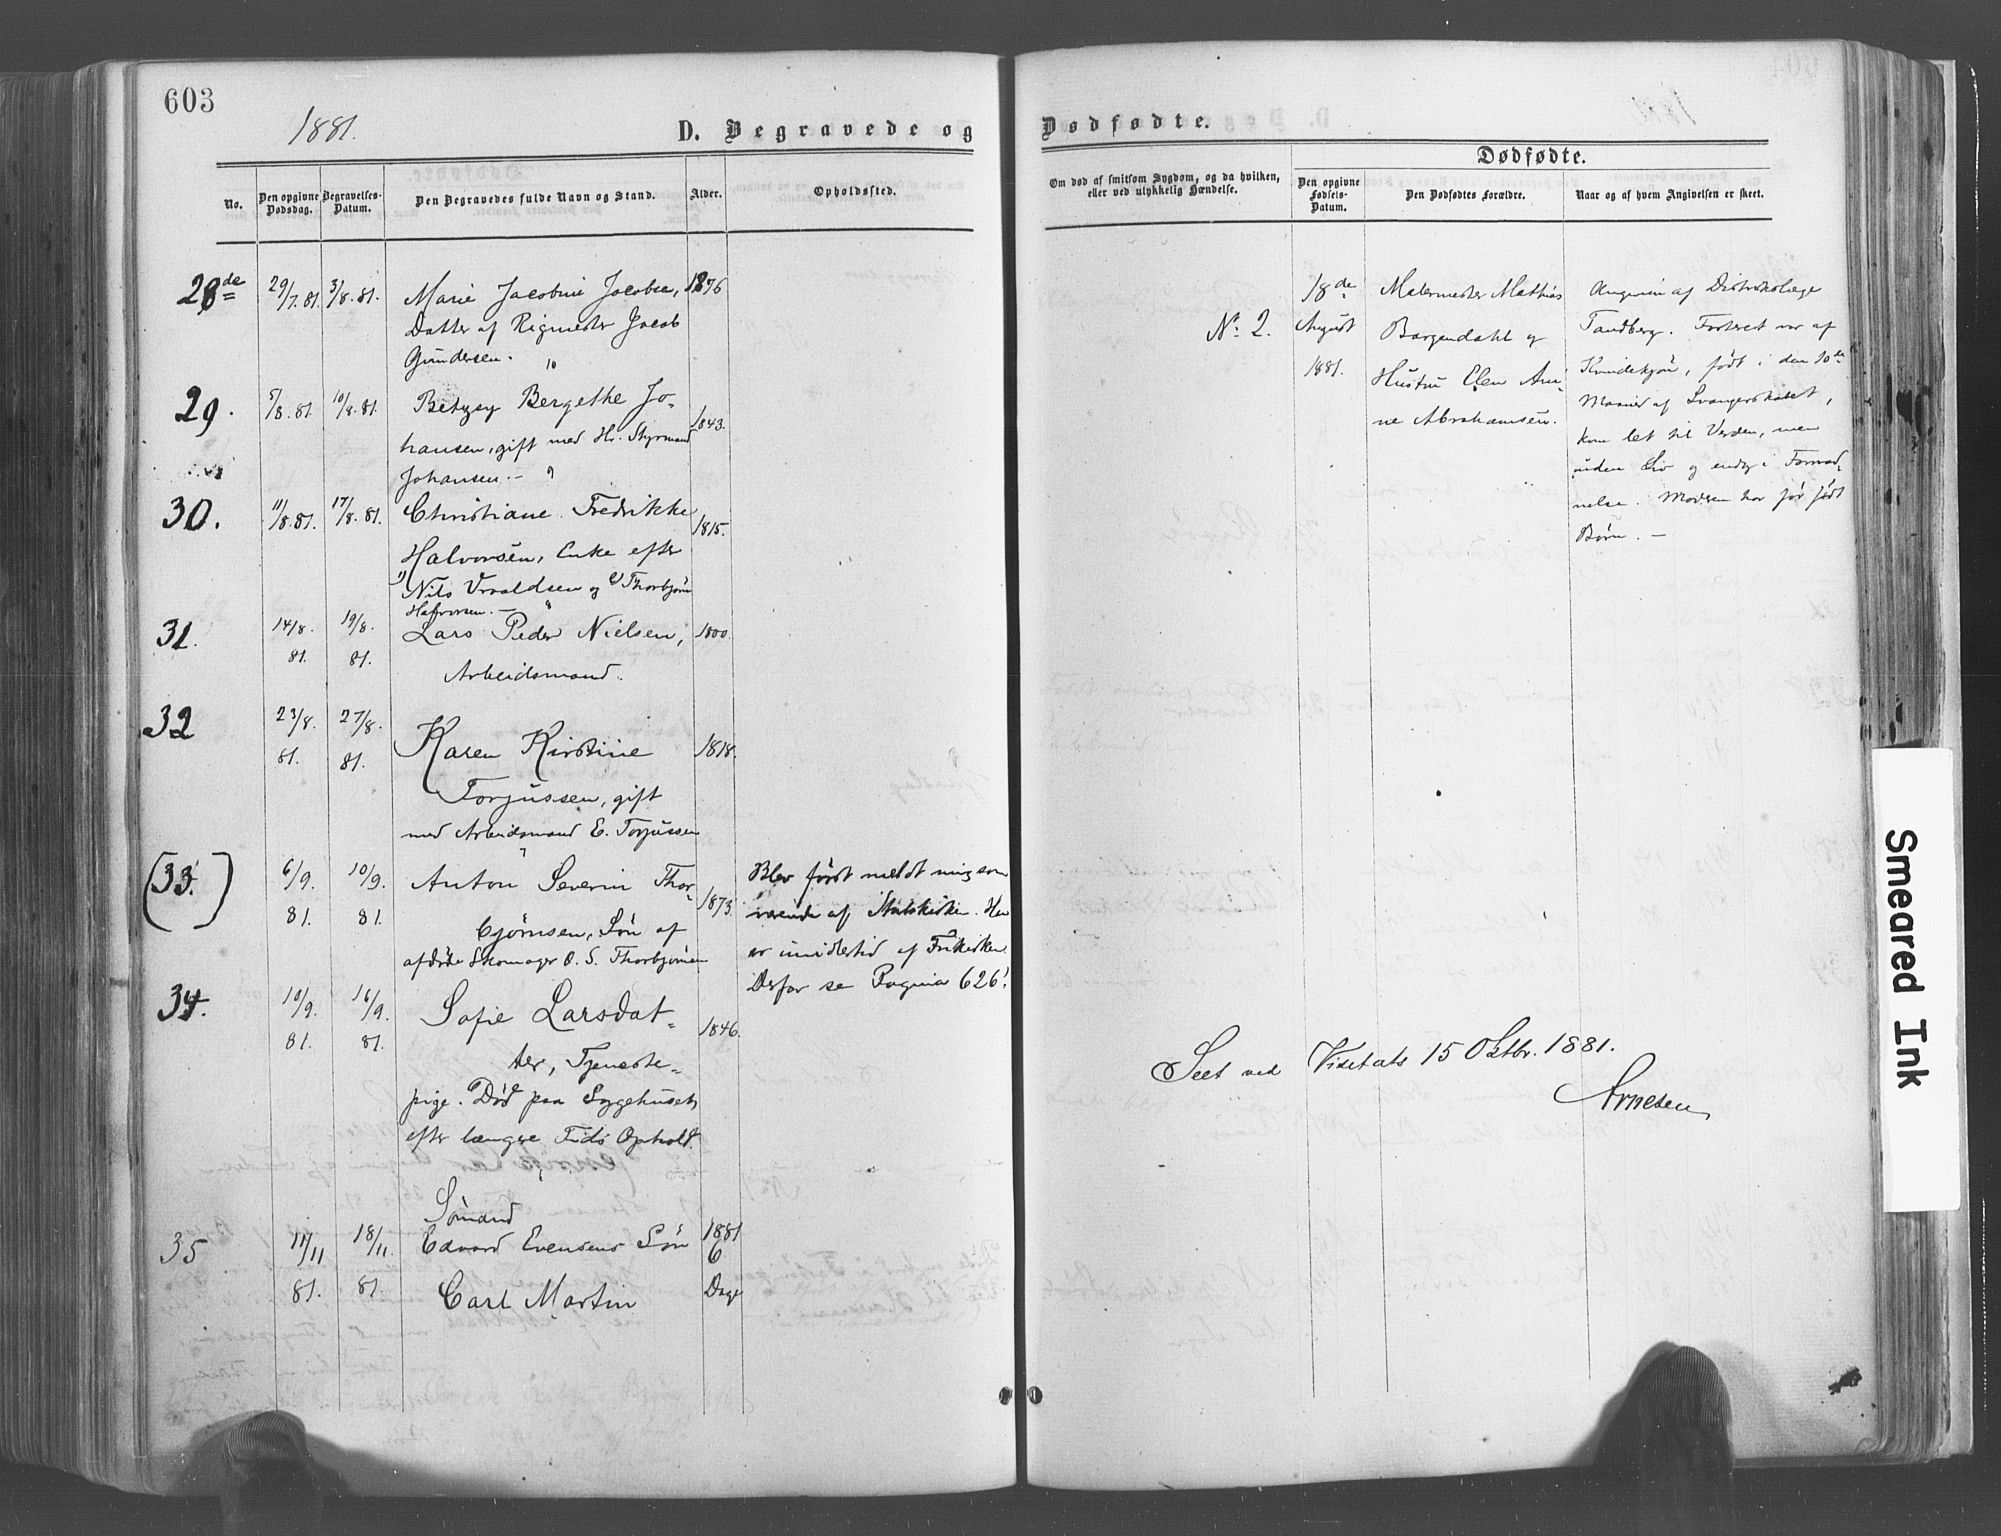 603
1881.
D. Begravede og
Dødfødte.
No.
Den opgivne Dødsdag.
Begravelses-Datum.
Den Begravedes fulde Navn og Stand.
Alder.
Opholdssted.
Om død af smitsom Sygdom, og da hvilken, eller ved ulykkelig Hændelse.
Dødfødte.
Den opgivne Fødsels-Datum.
Den Dødfødtes Forældre.
Naar og af hvem Angivelsen er skeet.
28de 29/7.81. 3/8.81. Marie Jacobine Jacobse, 1876
Datter af Rigmester Jacob
Gundersen.
29. 5/8.81. 10/8.81. Betzey Bergethe Jo-
hansen, gift med Hr. Styrmand 1843.
Johansen.
30. 11/8.81. 17/8.81. Christiane Fredrikke
Halvorsen, Enke efter 1815.
1) Nils Vraaldsen og 2) Thorbjørn
Halvorsen.
31. 14/8. 81. 19/8. 81. Lars Peder Nielsen, 1800.
Arbeidsmand.
32 23/8. 81. 27/8. 81. Karen Kirstine 1818.
Torjussen, gift
med Arbeidsmand E. Torjussen
(33.) 6/9. 81. 10/9. 81. Anton Severin Thor-
bjørnsen, Søn af 1873.
afdøde Skomager O. S. Thorbjørnsen
Blev først meldt mig som
værende af Statskirken. Han
er imidlertid af Frikirken.
Derfor se Pagina 626!
34. 10/9. 81. 16/9. 81. Sofie Larsdat-
ter, Tjeneste- 1846.
pige. Død paa Sygehuset
efter længere Tids Ophold.
Sømand
35 11/11 81. 18/11. 81. Edvard Evensens Søn
Carl Martin
1881
6
Dage
No. 2.
18de
August
1881.
Malermester Mathias
Borgendahl og
Hustru Elen An-
ne Abrahamsen.
Angiven af Distriktslæge
Tandberg. Fosteret var af
Kvindekjøn, født i den 10de
Maaned af Svangerskabet,
kom let til Verden, men
uden Liv og endog i Forraad-
nelse. Moderen har før født
Børn.
Seet ved Visitats 15 Oktbr. 1881.
Arnesen
Smeared Ink